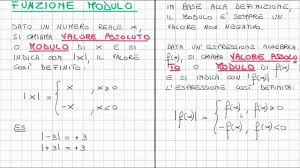 FUNZIONE MODULO
DATO UN NUMERO REALE X,
SI CHIAMA VALORE ASSOLUTO
O MODULO DI X E SI
INDICA CON |X|, IL VALORE
COSÌ DEFINITO:
|X| = { X , X ≥ 0
-X , X < 0
ES
|-3| = +3
|+3| = +3
IN BASE ALLA DEFINIZIONE,
IL MODULO È SEMPRE UN
VALORE NON NEGATIVO.
DATA UN'ESPRESSIONE ALGEBRICA
f(x), SI CHIAMA VALORE ASSOLU
TO O MODULO DI f(x)
E SI INDICA CON |f(x)|
L'ESPRESSIONE COSÌ DEFINITA:
|f(x)| = { f(x) , f(x) ≥ 0
-f(x) , f(x) < 0